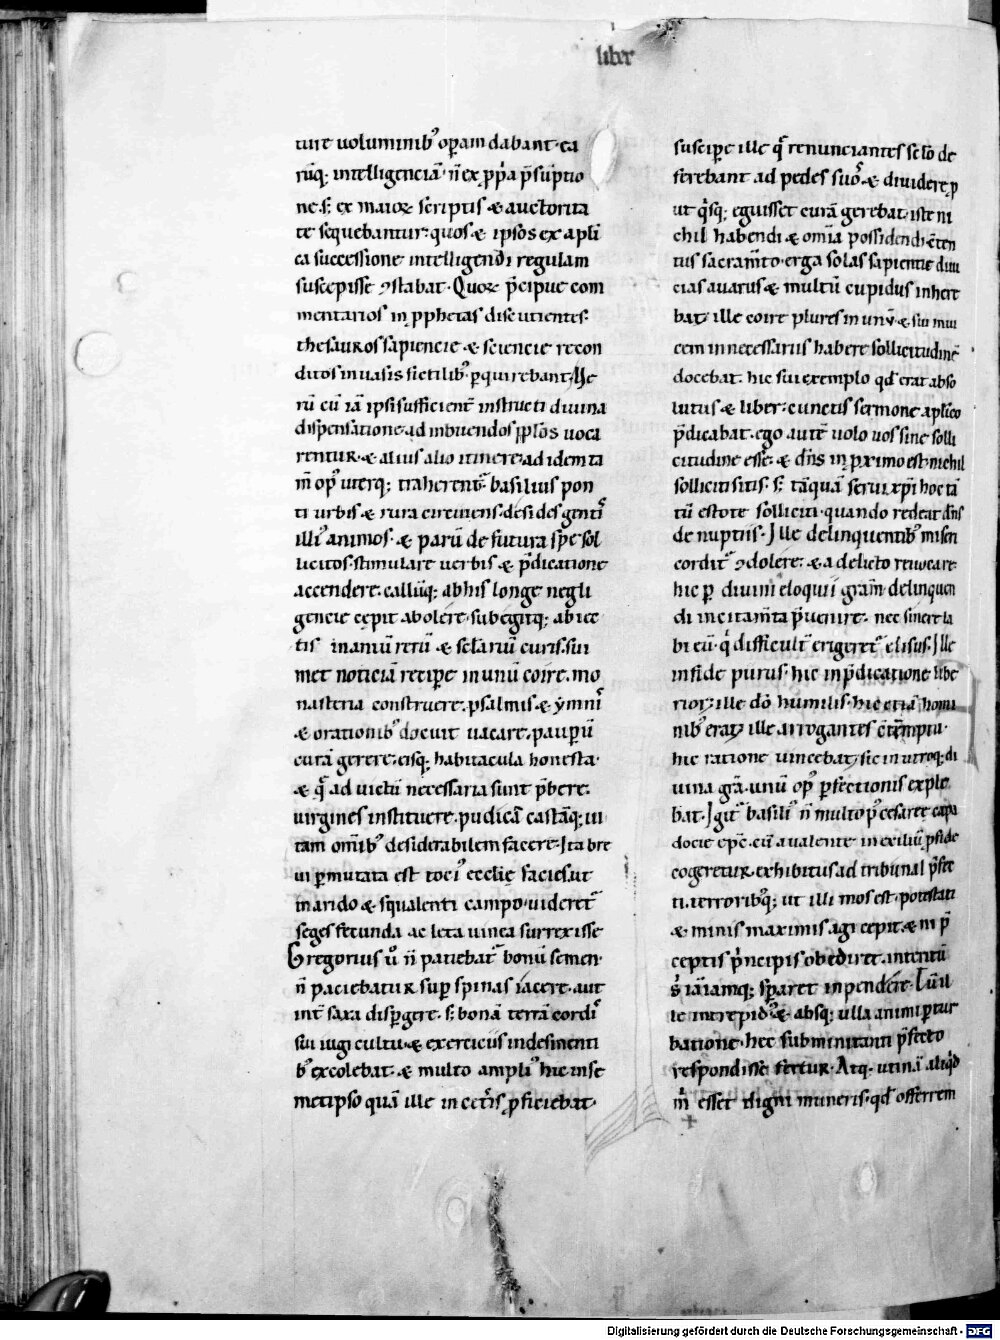 liber
ture voluminib᾽ oꝑam dabant· ea
rūq; intelligenciā· n̄ ex ꝓp̄a p̄sūptio
ne· s; ex maioꝝ scriptis & auctorita
te sequebantur· quos & ipsos ex apl̄i
ca successione intelligendi regulam
suscepisse ꝯstabat· Quoꝝ p̄cipue com
mentarios in ꝓphetas discutientes·
thesauros sapiencie & sciencie recon
ditos in uasis fictilib᾽ ꝑquirebant· Ue
rū cū iā ipsi sufficient᷑ instructi diuina
dispensatione· ad inbuendos ppl̄os uoca
rentur· & alius alio itinere· ad idem ta
m̄ op᾽ uterq; traherent᷑· basilius pon
ti urbis & rura circuiens· desides gentis
illi᾽ animos· & parū de futura spe sol
licitos· stimulare uerbis & p̄dicatione
accendere· calliūq; ab his longe negli
gencie cepit abolere· subegitq; abiec
tis inaniū rerū & sclariū curis· sui
met noticiā recipe· in unū coire· mo
nasteria construere· psalmis & ymnis
& orationib᾽ docuit uacare· pauperū
curā gerere· eisq; habitacula honesta·
& q̄ ad uictū necessaria sunt p̄bere·
uirgines instituere· pudicā castāq; ui
tam om̄ib᾽ desiderabilem facere· Ita bre
ui ꝑmutata est toci᾽ ecclie facies· ut
in arido & squalenti campo· uideret᷑
seges fecunda ac leta uinea surrexisse
Gregorius u᾽o n̄ patiebat᷑ bonū semen·
n̄ paciebatur suꝑ spinas iacere· aut
int᷑ saxa disꝑgere· s; bonā terrā cordis
sui iugi cultu· & exercicus indesinenti
b᾽ excolebat· & multo ampli᾽ hic inse
metipso quā ille in cet᷑is ꝓficiebat·
suscipe ille q̄ renunciantes sclo de
ferebant ad pedes suos· & diuidere ꝓ
ut q̇sq; eguisset curā gerebat· iste ni
chil habendi & om̄ia possidendi· c̄ten
tus sacram̄to· erga solas sapientie diui
cias auarus· & multū cupidus inhert
bat· ille coire plures in unū· & sui inui
cem in necessariis habere sollicitudinē
docebat· hic sui exemplo qd᾽ erat abso
lutus & liber· cunctis sermone aplico
p̄dicabat· ego autē uolo uos sine solli
citudine esse· & dn̄s in ꝓximo est· nichil
solliciti sitis· s; tāquā serui xp̄i hoc tā
tū estote solliciti· quando redeat dn̄s
de nuptiis· Ille delinquentib᾽ miseri
cordit᷑ ꝯdolere· & a delicto reuocare·
hic ꝑ diuini eloquii grām· delinquen
di incitam̄ta p̄uenire· nec sinere la
bi eū· q̇ difficult᷑ erigeret᷑ elisus· Ille
in fide purus· hic in p̄dicatione libe
rior· ille dō humilis· hic etiā homi
nib᾽ erat· ille arrogantes c̄tēmptu·
hic ratione uincebat· sic in utroq; di
uina grā· unū op᾽ ꝑfectionis exple
bat· Igit᷑ basili᾽ n̄ multo p᾽ cesaree capa
docie epc̄· cū a ualente in exiliū p̄side
cogeretur· exhibitus ad tribunal p̄fec
ti· terroribꝰq; ut illi mos est· potestati
& minis maximis agi cepit· & ni p̄
ceptis p̄ncipis obediret· interitū
s᾽ iā iamq; speraret inpendere· Tū il
le intrepid᾽ & absq; ulla animi ꝑtur
batione· hec subminitanti p̄fecto
respondisse fertur· Atq· utinā aliq᾽d
m̄ esset digni muneris· qd᾽ offerrem